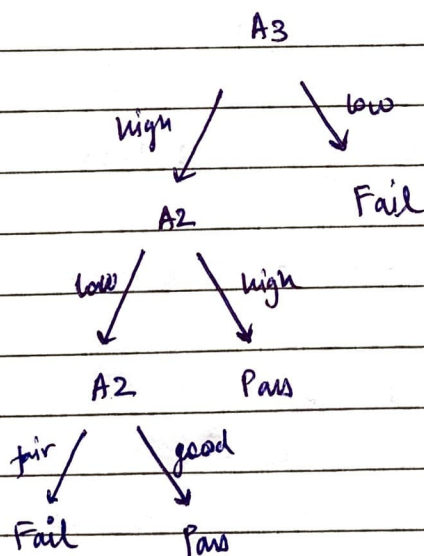 A3
high low
A2 Fail
low high
A2 Pass
fair good
Fail Pass